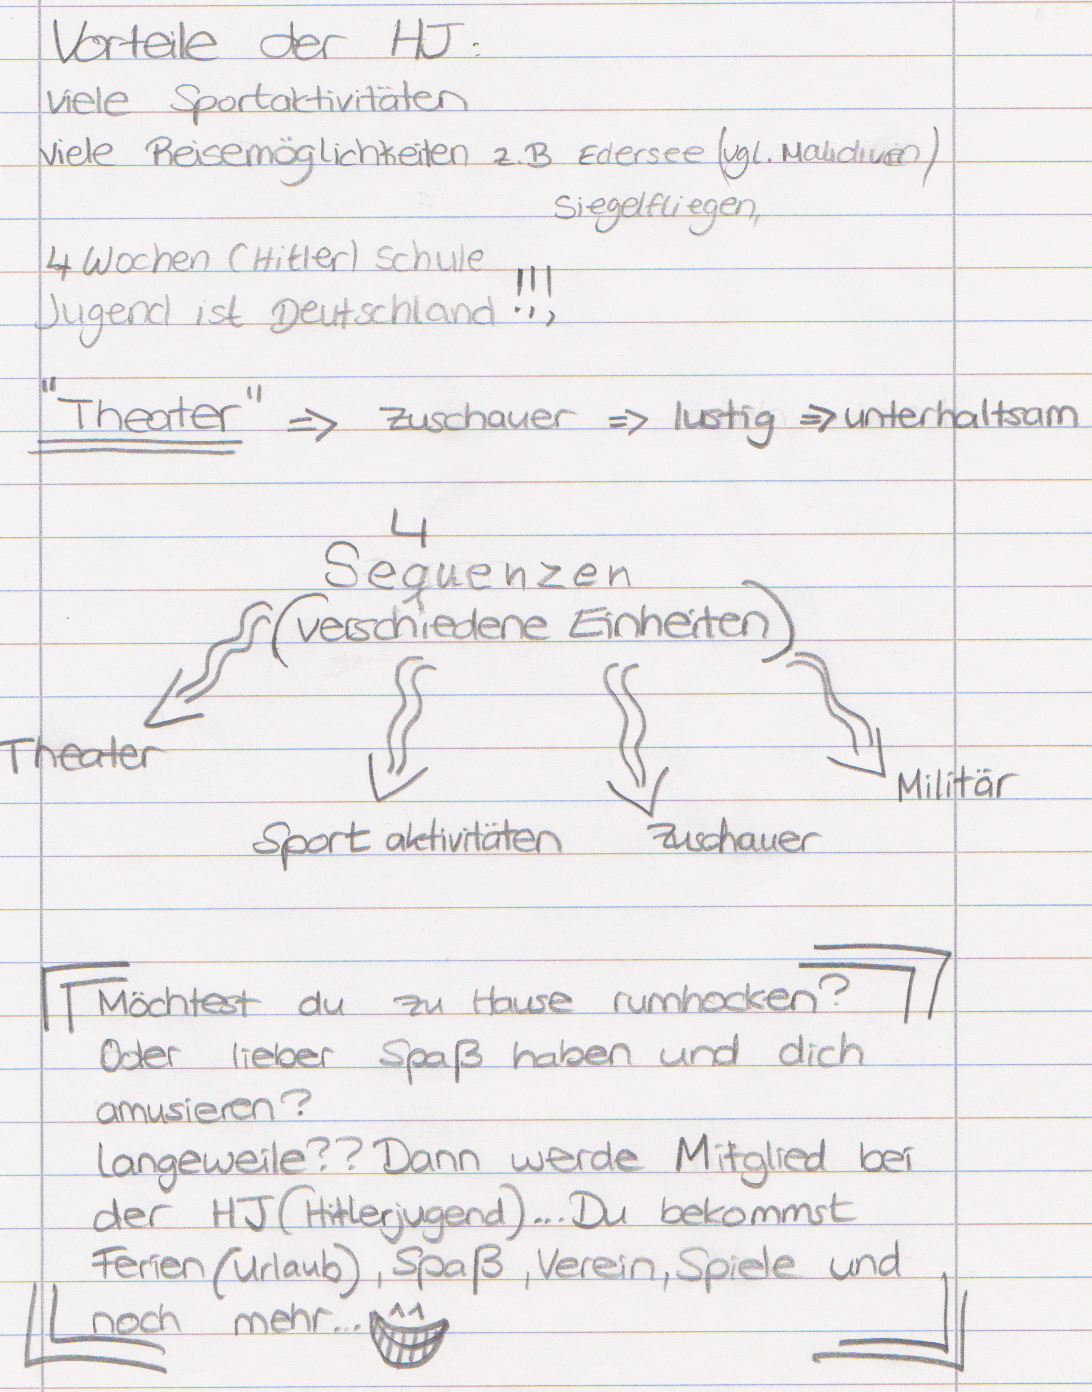 Vorteile der HJ:
viele Sportaktivitäten
viele Reisemöglichkeiten z.B Edersee (vgl. Malidiven)
Siegelfliegen,
4 Wochen (Hitler) Schule
Jugend ist Deutschland !!!,
"Theater" => Zuschauer => lustig => unterhaltsam
4
Sequenzen
(verschiedene Einheiten)
Theater
Militär
Sport aktivitäten Zuschauer
Möchtest du zu Hause rumhocken?
Oder lieber Spaß haben und dich
amusieren?
Langeweile?? Dann werde Mitglied bei
der HJ (Hitlerjugend)... Du bekommst
Ferien (Urlaub), Spaß, Verein, Spiele und
noch mehr... ^^